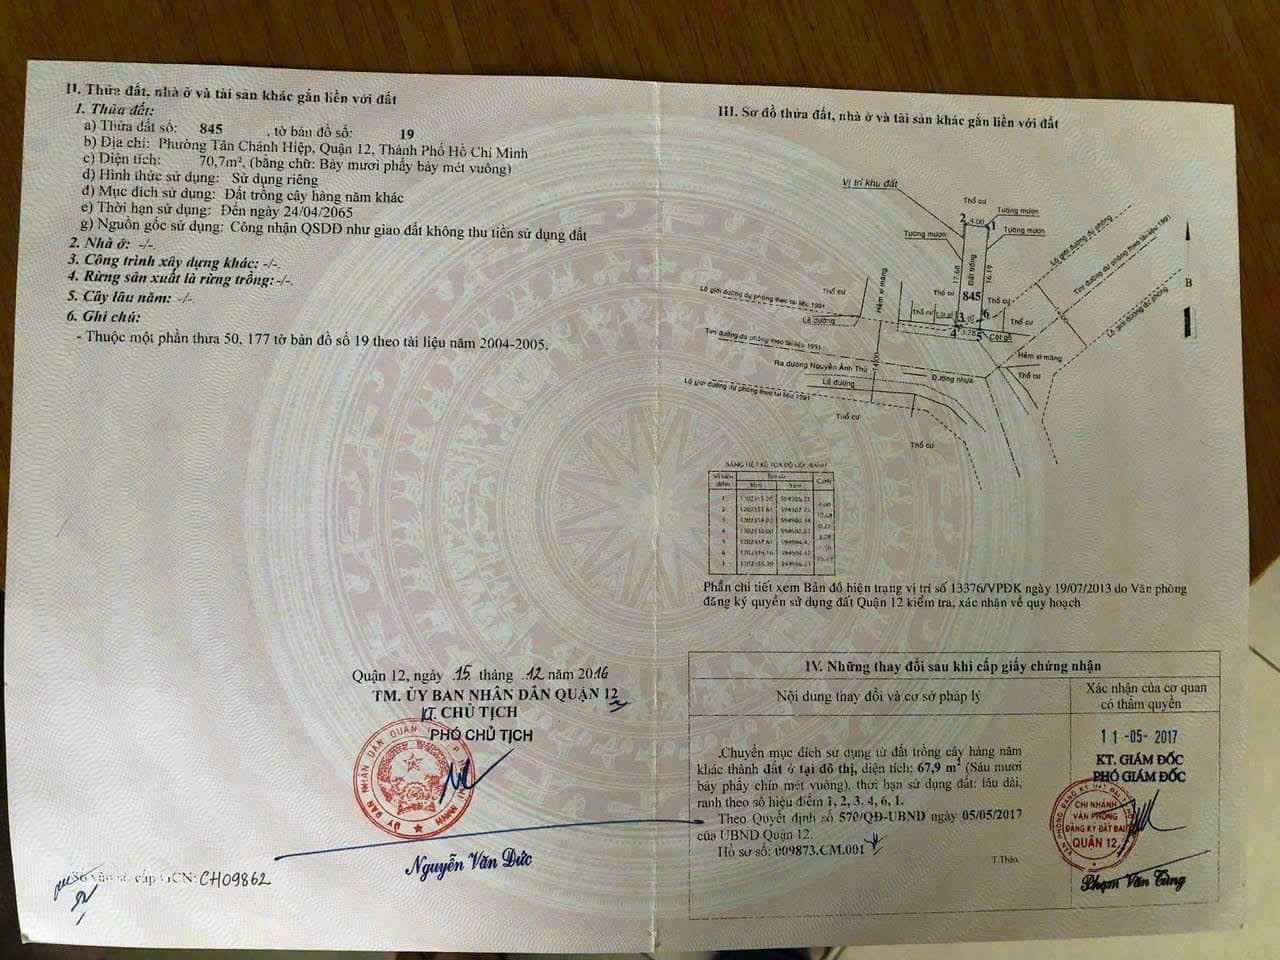 II. Thửa đất, nhà ở và tài sản khác gắn liền với đất
1. Thửa đất:
a) Thửa đất số: 845 , tờ bản đồ số: 19
b) Địa chỉ: Phường Tân Chánh Hiệp, Quận 12, Thành Phố Hồ Chí Minh
c) Diện tích: 70,7m², (bằng chữ: Bảy mươi phẩy bảy mét vuông)
d) Hình thức sử dụng: Sử dụng riêng
đ) Mục đích sử dụng: Đất trồng cây hàng năm khác
e) Thời hạn sử dụng: Đến ngày 24/04/2065
g) Nguồn gốc sử dụng: Công nhận QSDĐ như giao đất không thu tiền sử dụng đất
2. Nhà ở: -/-
3. Công trình xây dựng khác: -/-
4. Rừng sản xuất là rừng trồng: -/-
5. Cây lâu năm: -/-
6. Ghi chú:
- Thuộc một phần thưa 50, 177 tờ bản đồ số 19 theo tài liệu năm 2004-2005.
Quận 12, ngày 15 tháng 12 năm 2016
TM. ỦY BAN NHÂN DÂN QUẬN 12
KT. CHỦ TỊCH
PHÓ CHỦ TỊCH
Nguyễn Văn Đức
Số vào sổ cấp GCN: CH09862
III. Sơ đồ thửa đất, nhà ở và tài sản khác gắn liền với đất
Vị trí khu đất
Thổ cư
2 4.00 1
Tường mượn
Tường mượn
Tường mượn
17.68
Đất trống
16.19
845
Thổ cư
Thổ cư
Lộ giới đường dự phóng theo tài liệu 1991
Tim đường dự phóng theo tài liệu 1991
Lộ giới đường dự phóng
B
Hẻm xi măng
Thổ cư
Lộ giới đường dự phóng theo tài liệu 1991
Lề đường
Thổ cư
3
6
4
5
Thổ cư
Cột gỗ
Tim đường dự phóng theo tài liệu 1991
Ra đường Nguyễn Ảnh Thủ
Đường nhựa
Hẻm xi măng
Thổ cư
Lề đường
Lộ giới đường dự phóng theo tài liệu 1991
Thổ cư
Thổ cư
BẢNG LIỆT KÊ TỌA ĐỘ GÓC RANH
Số hiệu điểm
Tọa độ
Cạnh
1
2
3
4
5
6
1
Phần chi tiết xem Bản đồ hiện trạng vị trí số 13376/VPĐK ngày 19/07/2013 do Văn phòng
đăng ký quyền sử dụng đất Quận 12 kiểm tra, xác nhận về quy hoạch
IV. Những thay đổi sau khi cấp giấy chứng nhận
Nội dung thay đổi và cơ sở pháp lý
Xác nhận của cơ quan
có thẩm quyền
.Chuyển mục đích sử dụng từ đất trồng cây hàng năm
khác thành đất ở tại đô thị, diện tích: 67,9 m² (Sáu mươi
bảy phẩy chín mét vuông), thời hạn sử dụng đất: lâu dài,
ranh theo số hiệu điểm 1, 2, 3, 4, 6, 1.
Theo Quyết định số 570/QĐ-UBND ngày 05/05/2017
của UBND Quận 12.
Hồ sơ số: 009873.CM.001
T.Thảo.
11 -05- 2017
KT. GIÁM ĐỐC
PHÓ GIÁM ĐỐC
CHI NHÁNH
VĂN PHÒNG
ĐĂNG KÝ ĐẤT ĐAI
QUẬN 12
Phạm Văn Tùng